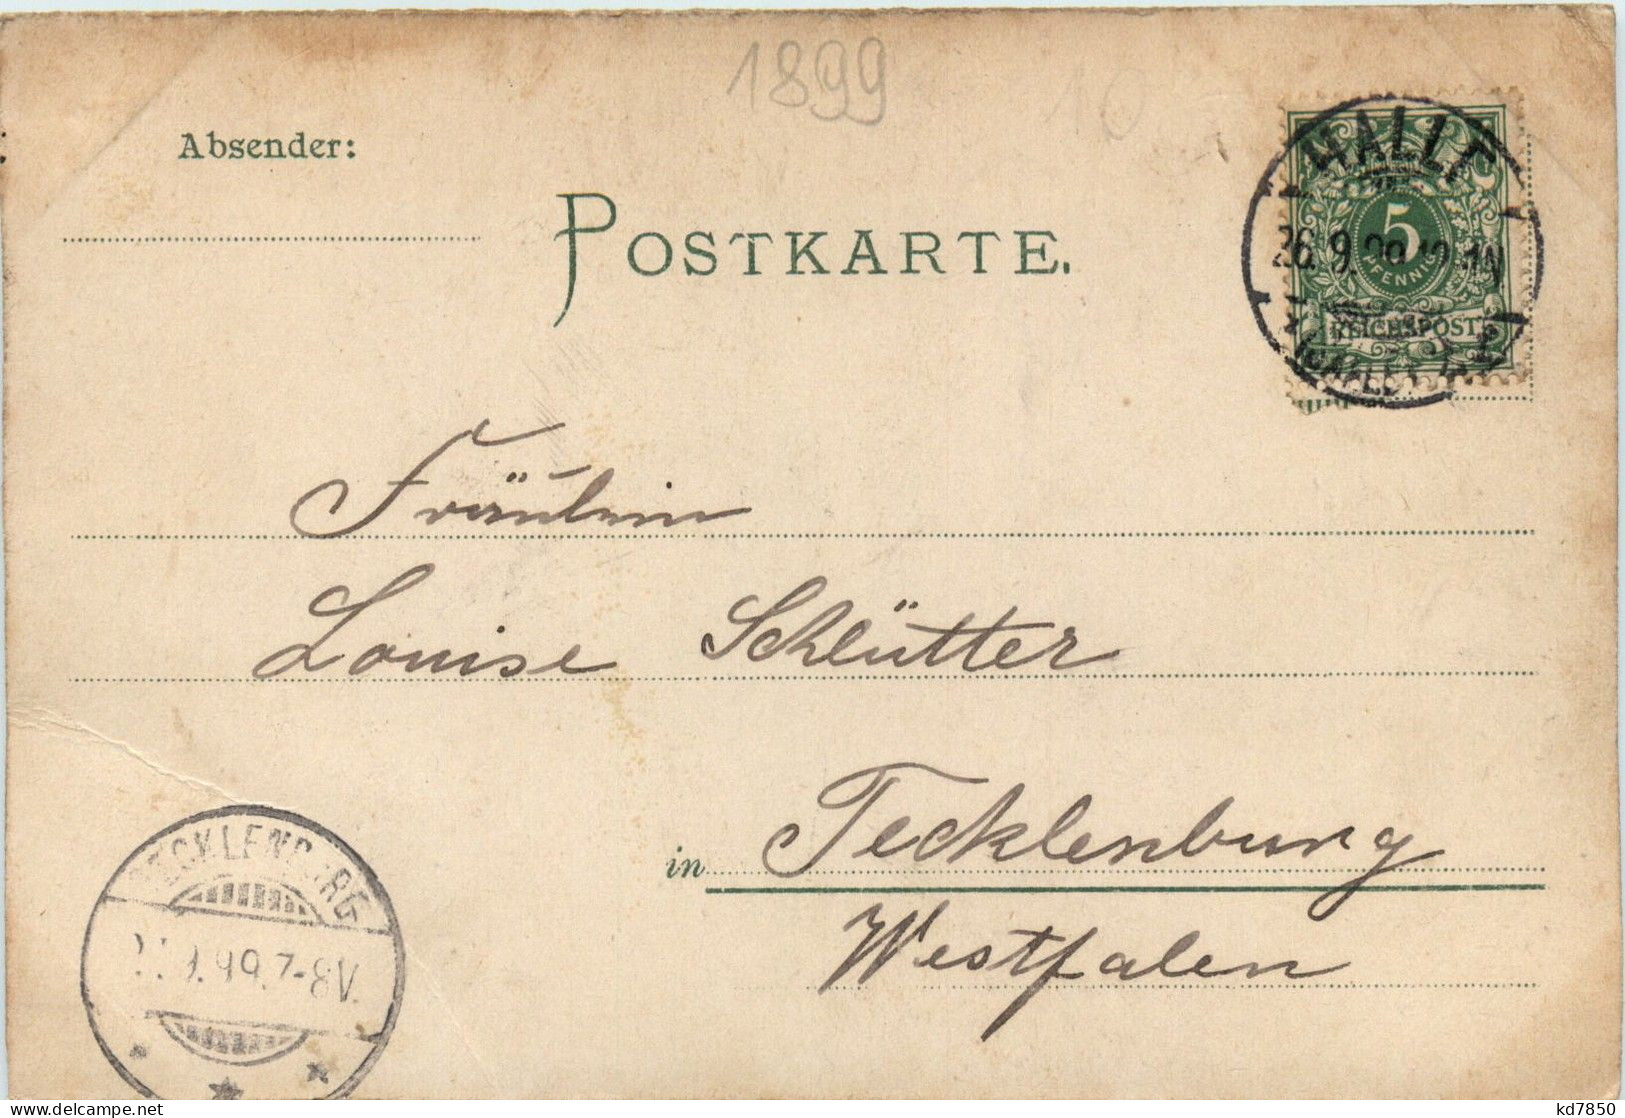 1899 10
Absender:
POSTKARTE.
HALLE
26.9.99.12-1N
(SAALE)
5
PFENNIG
REICHSPOST
Fräulein
Louise Schlütter
in Tecklenburg
Westfalen
TECKLENBURG
9.99.7-8V.
delcampe.net
kd7850